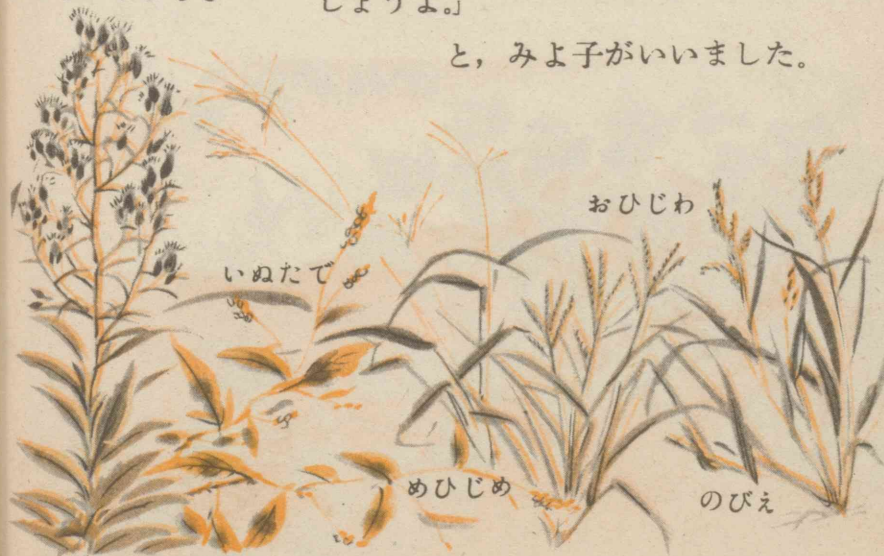 しょうよ。」
と，みよ子がいいました。
おひじわ
いぬたで
めひじめ
のびえ